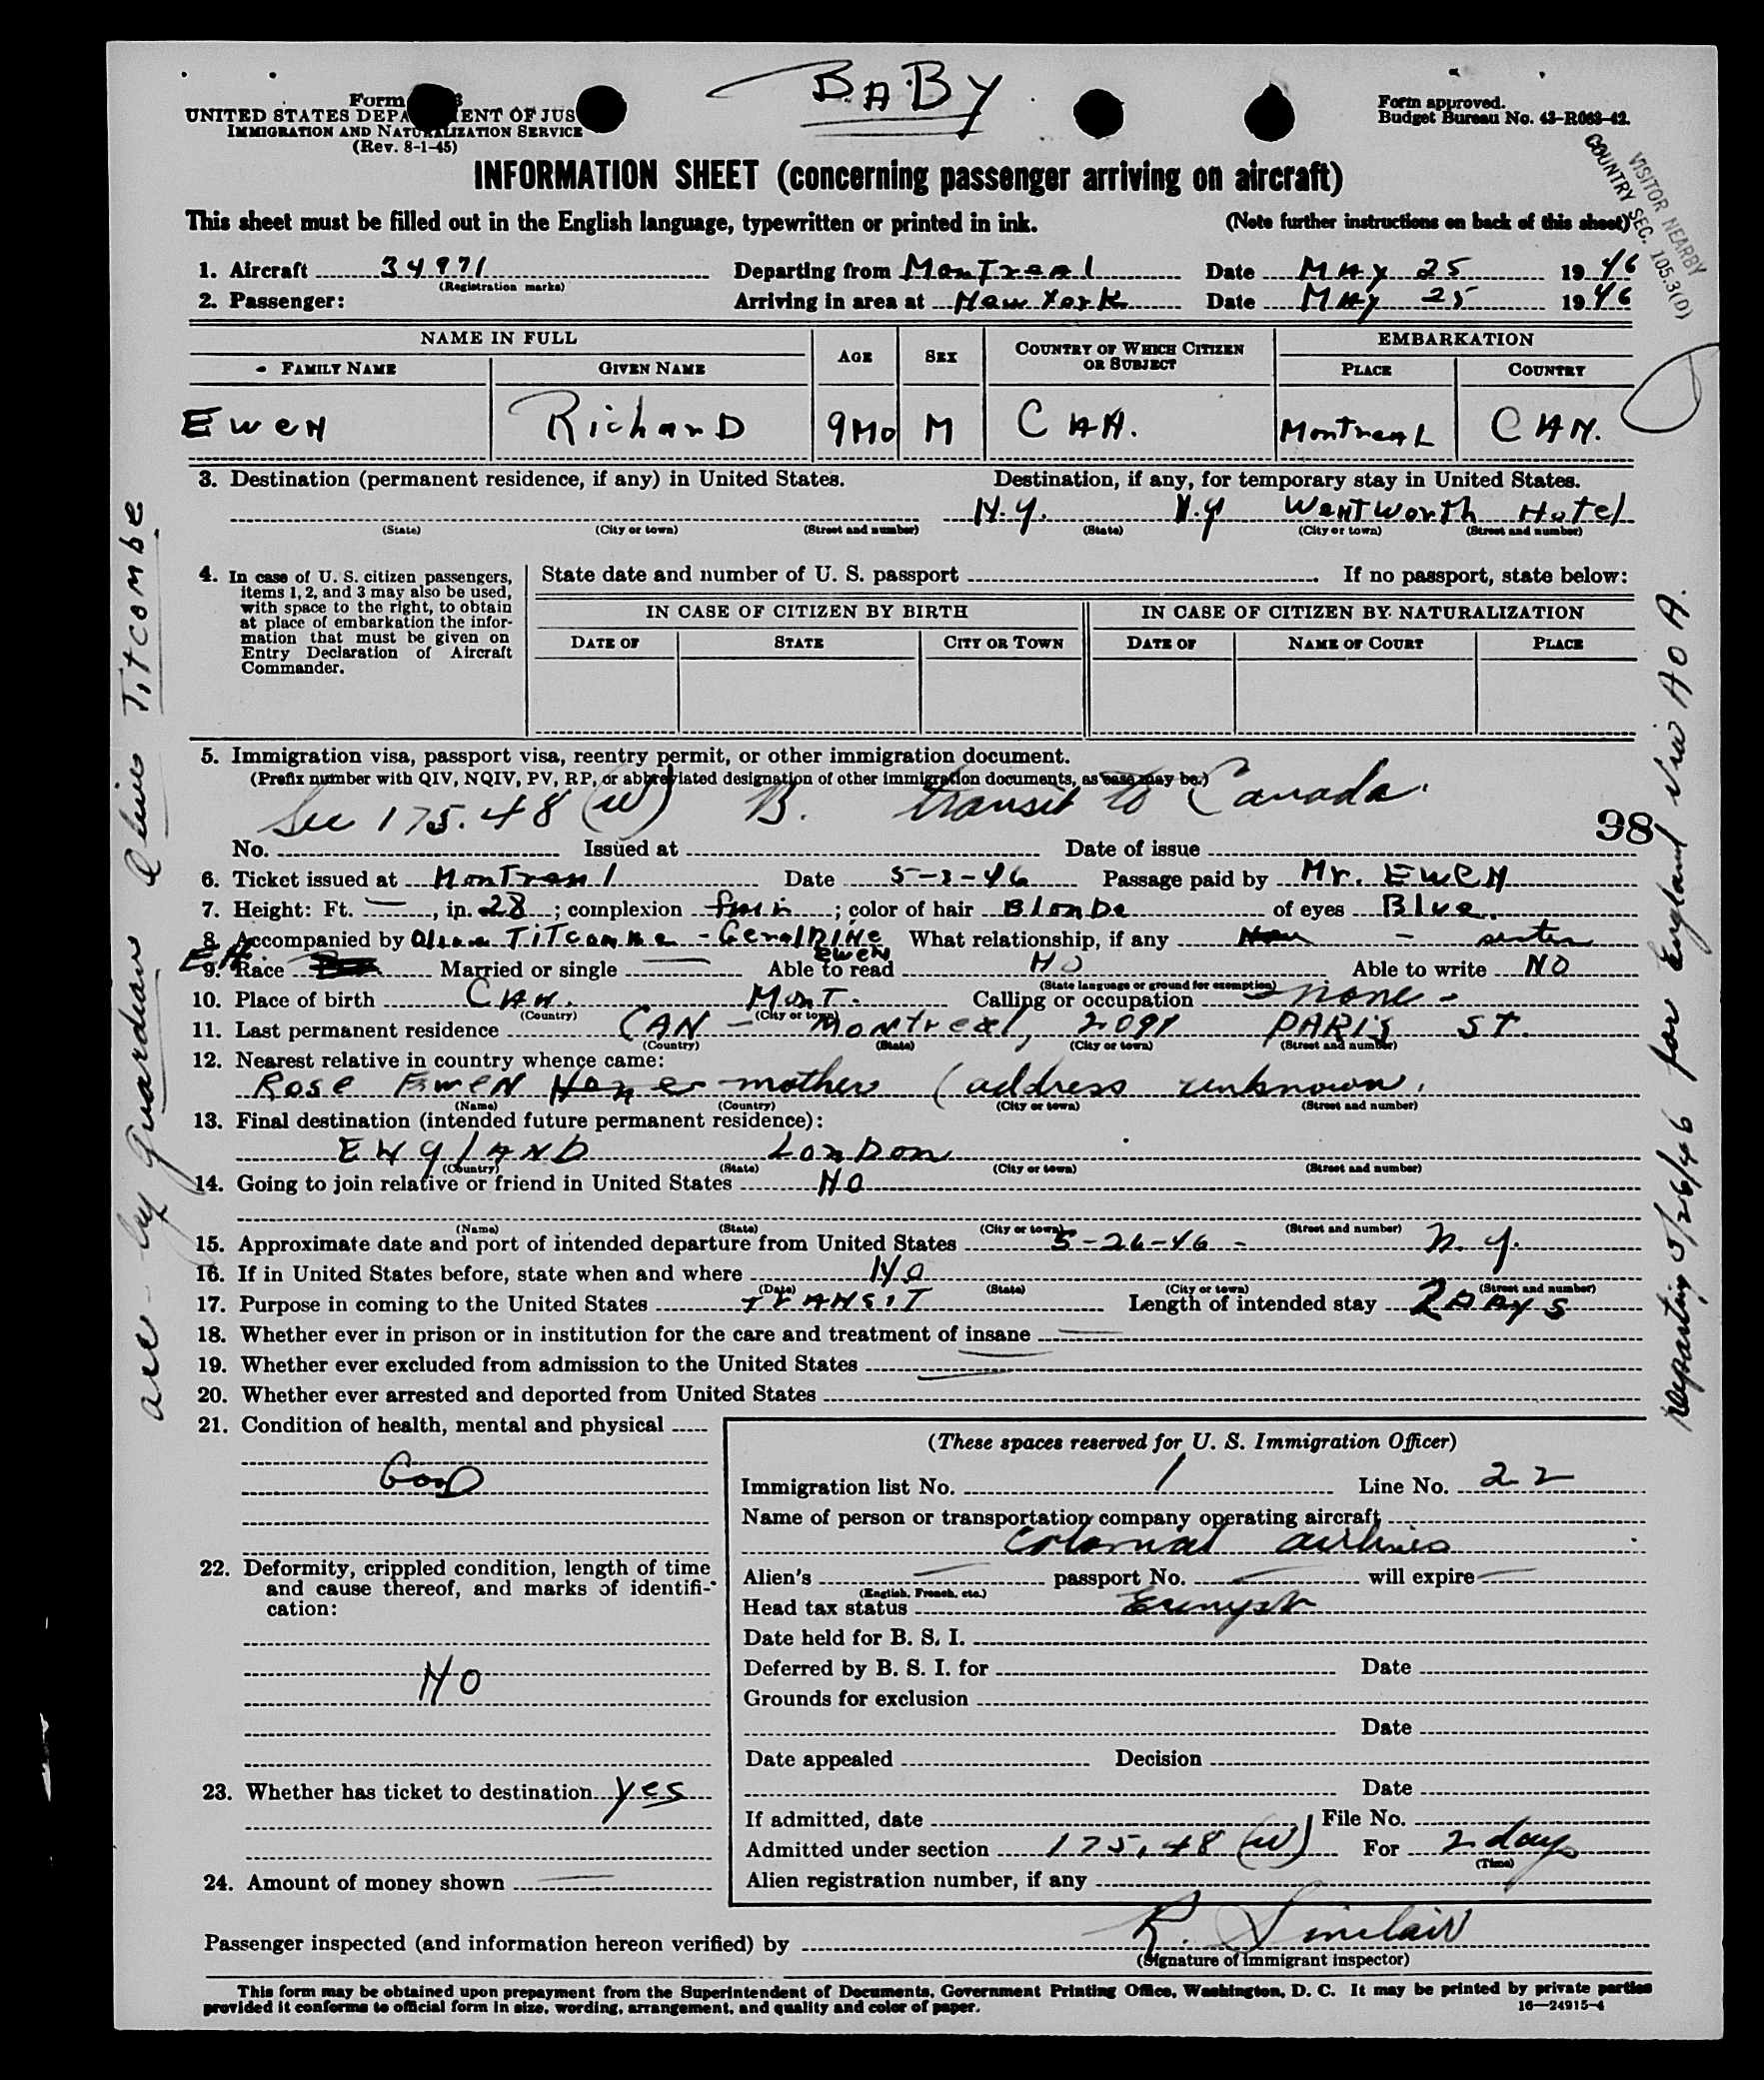 BABY
Form
UNITED STATES DEPA ENT OF JUS
IMMIGRATION AND NATURALIZATION SERVICE
(Rev. 8-1-45)
Form approved.
Budget Bureau No. 43-R063-42.
VISITOR NEARBY
COUNTRY SEC. 105.3(D)
INFORMATION SHEET (concerning passenger arriving on aircraft)
This sheet must be filled out in the English language, typewritten or printed in ink. (Note further instructions on back of this sheet)
1. Aircraft 34971 Departing from Montreal Date MAy 25 1946
(Registration marks)
2. Passenger: Arriving in area at New York Date MAy 25 1946
NAME IN FULL AGE SEX COUNTRY OF WHICH CITIZEN OR SUBJECT EMBARKATION
FAMILY NAME GIVEN NAME PLACE COUNTRY
EweN RicharD 9Mo M CAN. MontreaL CAN.
3. Destination (permanent residence, if any) in United States. Destination, if any, for temporary stay in United States.
N.y. N.y WentWorth Hotel
(State) (City or town) (Street and number) (State) (City or town) (Street and number)
4. In case of U. S. citizen passengers, items 1, 2, and 3 may also be used, with space to the right, to obtain at place of embarkation the information that must be given on Entry Declaration of Aircraft Commander.
State date and number of U. S. passport If no passport, state below:
IN CASE OF CITIZEN BY BIRTH IN CASE OF CITIZEN BY NATURALIZATION
DATE OF STATE CITY OR TOWN DATE OF NAME OF COURT PLACE
5. Immigration visa, passport visa, reentry permit, or other immigration document.
(Prefix number with QIV, NQIV, PV, RP, or abbreviated designation of other immigration documents, as case may be.)
Sec 175.48 (w) B. transit to Canada.
98
No. Issued at Date of issue
6. Ticket issued at MonTreal Date 5-3-46 Passage paid by Mr. EWEN
7. Height: Ft. — , in. 28 ; complexion fair ; color of hair BlonDe of eyes Blue.
8. Accompanied by TiTcombe - GeralDINe EWEN What relationship, if any - sister
9. Race EN. Married or single — Able to read NO Able to write NO
(State language or ground for exemption)
10. Place of birth CAN. MonT. Calling or occupation - none -
(Country) (City or town)
11. Last permanent residence CAN - MONtreal, 2091 PARIS ST.
(Country) (State) (City or town) (Street and number)
12. Nearest relative in country whence came:
Rose EWEN mother (address unknown.
(Name) (Country) (City or town) (Street and number)
13. Final destination (intended future permanent residence):
ENglAND LonDon
(Country) (State) (City or town) (Street and number)
14. Going to join relative or friend in United States NO
(Name) (State) (City or town) (Street and number)
15. Approximate date and port of intended departure from United States 5-26-46 - n.y.
16. If in United States before, state when and where NO
(Date) (State) (City or town) (Street and number)
17. Purpose in coming to the United States TRANSIT Length of intended stay 2 DAys
18. Whether ever in prison or in institution for the care and treatment of insane —
19. Whether ever excluded from admission to the United States —
20. Whether ever arrested and deported from United States
21. Condition of health, mental and physical
GooD
22. Deformity, crippled condition, length of time and cause thereof, and marks of identification:
NO
23. Whether has ticket to destination yes
24. Amount of money shown —
(These spaces reserved for U. S. Immigration Officer)
Immigration list No. 1 Line No. 22
Name of person or transportation company operating aircraft
Colonial airlines
Alien's — passport No. — will expire —
(English, French, etc.)
Head tax status Exempt
Date held for B. S. I.
Deferred by B. S. I. for Date
Grounds for exclusion
Date
Date appealed Decision
Date
If admitted, date File No.
Admitted under section 175.48 (w) For 2 days
(Time)
Alien registration number, if any
Passenger inspected (and information hereon verified) by R. Sinclair
(Signature of immigrant inspector)
This form may be obtained upon prepayment from the Superintendent of Documents, Government Printing Office, Washington, D. C. It may be printed by private parties
provided it conforms to official form in size, wording, arrangement, and quality and color of paper. 16—24915-4
acc - by guardian Olive Titcombe
departing 5/26/46 for England via A O A.